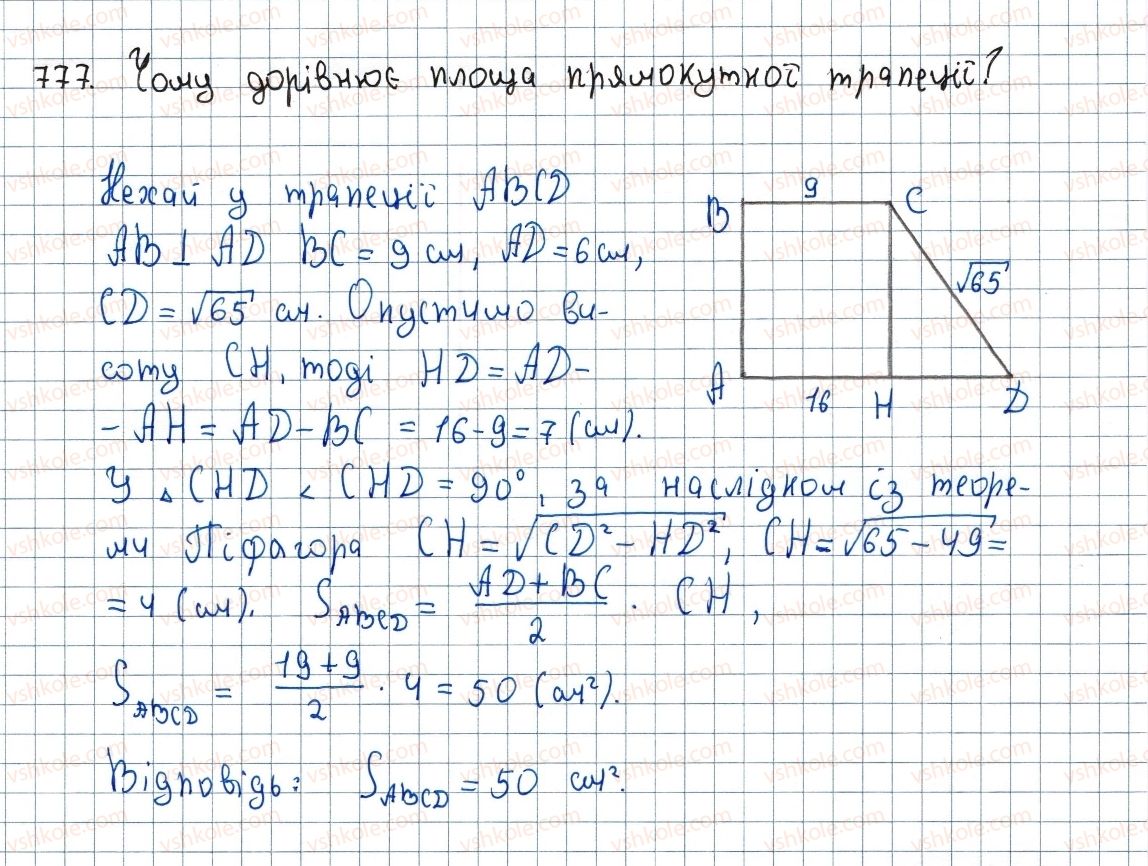 777. Чому дорівнює площа прямокутної трапеції?
Нехай у трапеції ABCD
AB ⊥ AD BC = 9 см, AD = 6 см,
CD = √65 см. Опустимо ви-
соту CH, тоді HD = AD -
- AH = AD - BC = 16 - 9 = 7 (см).
У △ CHD < CHD = 90°, за наслідком із теоре-
ми Піфагора CH = √(CD² - HD²), CH = √(65 - 49) =
= 4 (см). S_ABCD = (AD + BC)/2 · CH,
S_ABCD = (19 + 9)/2 · 4 = 50 (см²).
Відповідь: S_ABCD = 50 см².
B 9 C
√65
A 16 H D